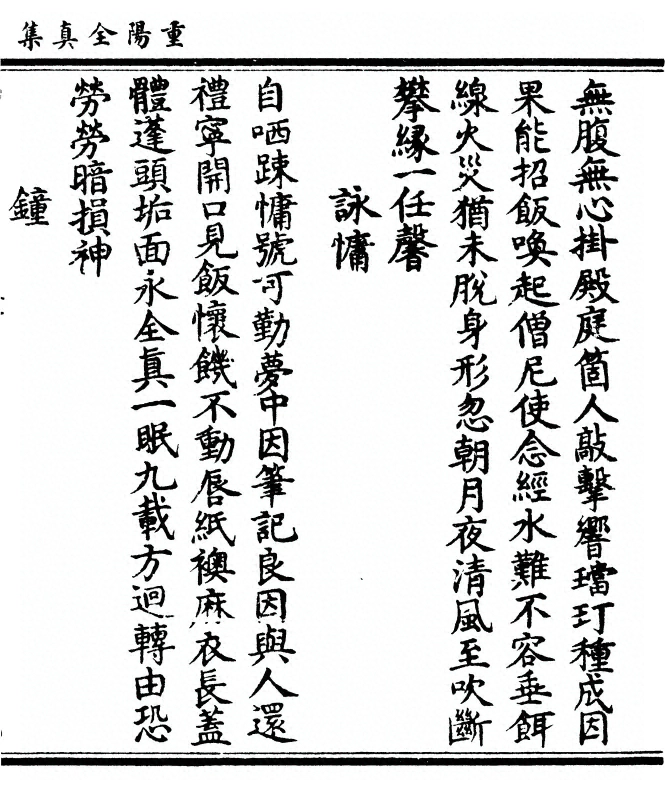 重陽全真集
無腹無心掛殿庭箇人敲擊響璫玎種成因
果能招飯喚起僧尼使念經水難不容垂餌
線火災猶未脫身形忽朝月夜清風至吹斷
攀緣一任馨
詠慵
自哂踈慵號可勤夢中因筆記良因與人還
禮寧開口見飯懷饑不動唇紙襖麻衣長蓋
體蓬頭垢面永全真一眠九載方迴轉由恐
勞勞暗損神
鐘